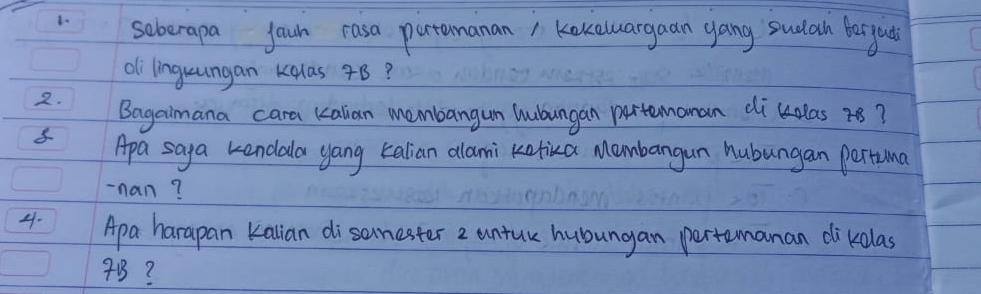 1. Seberapa jauh rasa pertemanan / kekeluargaan yang sudah terjadi
di lingkungan kelas 7B ?
2. Bagaimana cara kalian membangun hubungan pertemanan di kelas 7B ?
3 Apa saja kendala yang kalian alami ketika Membangun hubungan pertema
-nan ?
4. Apa harapan kalian di semester 2 untuk hubungan pertemanan di kelas
7B ?